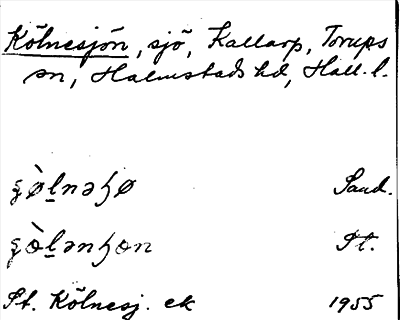 Kölnesjön, sjö, Kallarp, Torups
sn, Halmstads hd, Hall. l.
ɕø̀l̠nəɧø Sand.
ɕœ̀l̠ənɧœn St.
St. Kölnesj. ek 1955